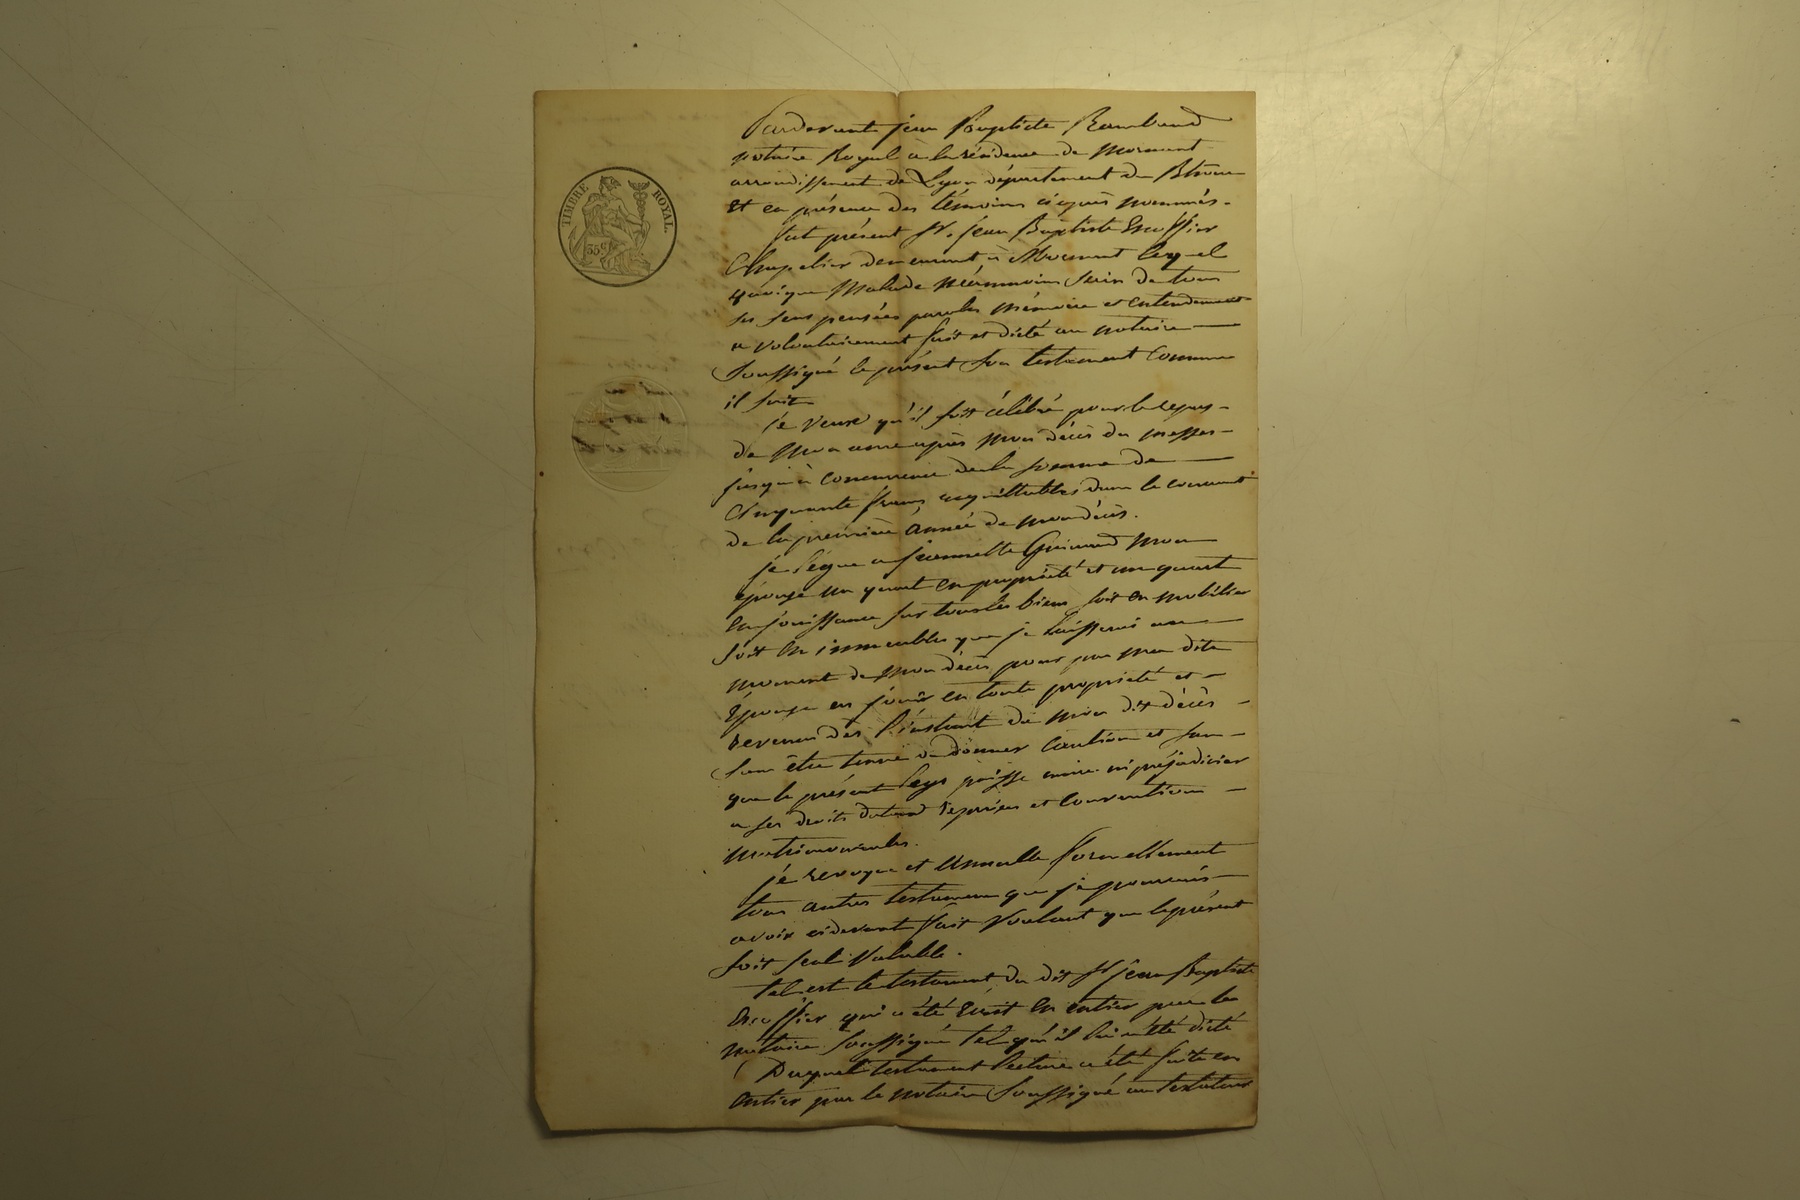 TIMBRE ROYAL.
35 c.
Pardevant jean Baptiste Rambaud
notaire Royal à la résidence de Mornant
arrondissement de Lyon département du Rhône
Et en présence des témoins ciaprès nommés.
fut présent Sr. jean Baptiste Escoffier
Chapelier demeurant à Mornant lequel
quoique Malade néanmoins sain de tous
ses sens pensées paroles mémoire et entendement
a volontairement fait et dicté au notaire
Soussigné le présent son testament comme
il suit
je veux qu'il soit célébré pour le repos
de mon ame après mon décès des messes
jusqu'à concurrence de la somme de
Cinquante francs acquittables dans le courant
de la première année de mon décès.
je lègue a jeannette Guinand mon
épouse un quart en propriété et un quart
en jouissance sur tous les biens soit en mobilier
soit en immeubles que je laisserai au
moment de mon décès pour par ma dite
Epouse en jouir en toute propriété et
revenus dès l'instant de mon dit décès
sans être tenue de donner caution et sans
que le présent legs puisse nuire ni préjudicier
a ses droits dotaux reprises et conventions
matrimoniales.
je revoque et annulle formellement
tous autres testamens que je pourrais
avoir cidevant fait voulant que le présent
soit seul valable.
tel est le testament du dit Sr jean Baptiste
Escoffier qui a été écrit en entier par le
notaire soussigné tel qu'il lui a été dicté
Duquel testament lecture a été faite en
entier par le notaire soussigné au testateur